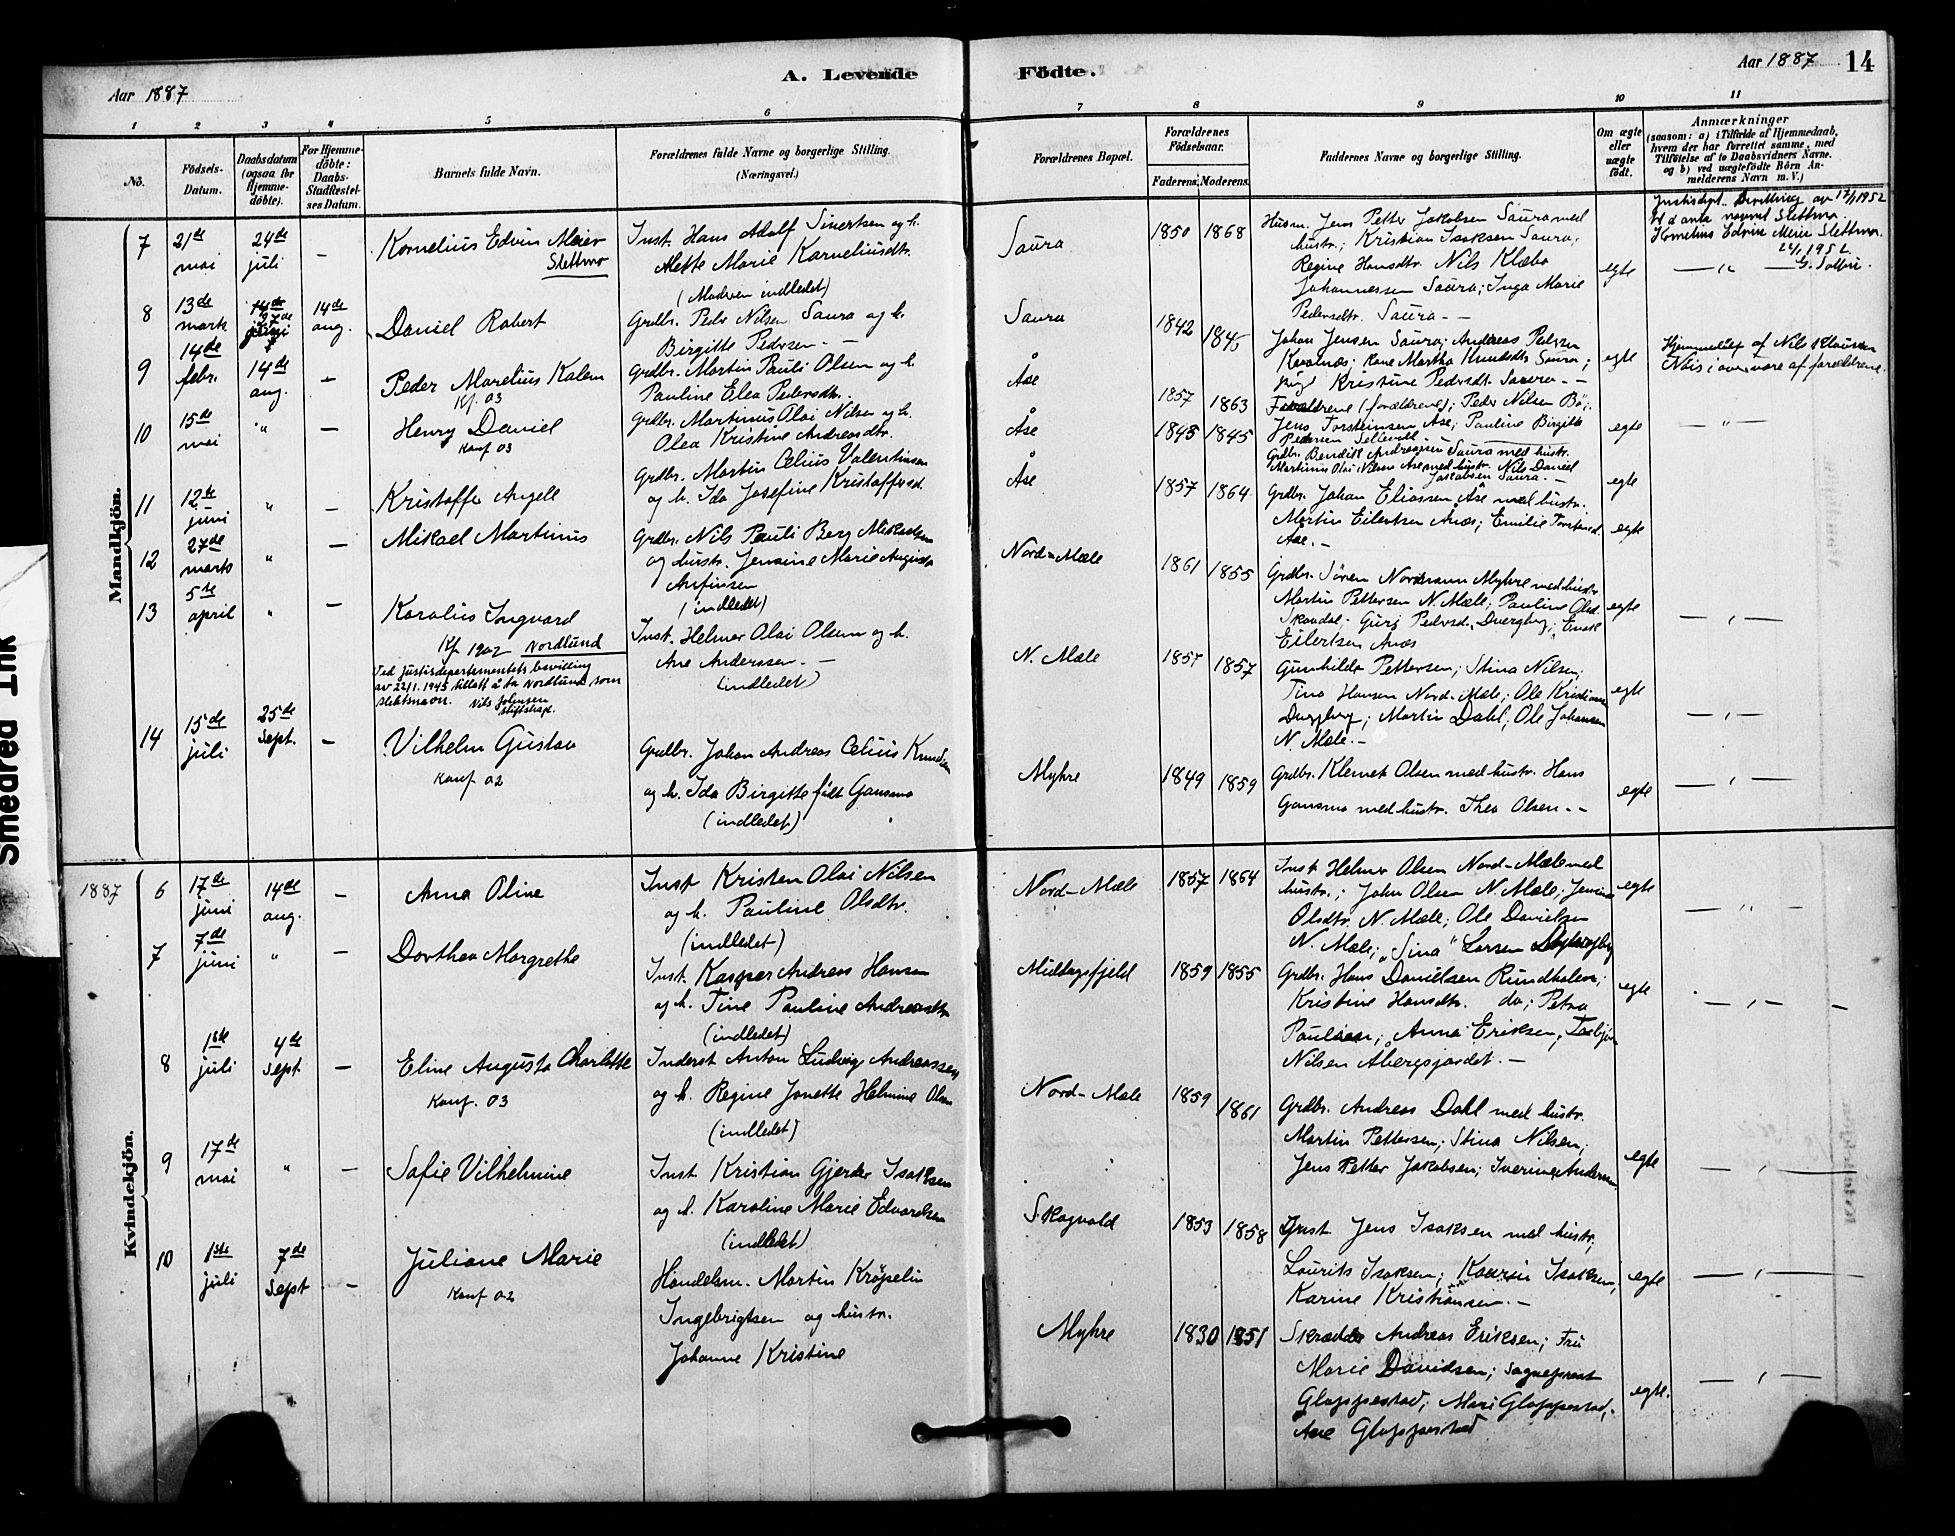 A. Levende Födte.
Aar 1887
Aar 1887 14
1 2 3 4 5 6 7 8 9 10 11
No.
Födsels-Datum.
Daabsdatum (ogsaa for Hjemme-döbte).
For Hjemme-döbte: Daabs-Stadfestel-ses Datum.
Barnets fulde Navn.
Forældrenes fulde Navne og borgerlige Stilling.
(Næringsvei.)
Forældrenes Bopæl.
Forældrenes Födselsaar.
Faderens. Moderens.
Faddernes Navne og borgerlige Stilling.
Om ægte eller uægte födt.
Anmærkninger
(saasom: a) i Tilfælde af Hjemmedaab,
hvem der har forrettet samme, med
Tilföielse af to Daabsvidners Navne.
og b) ved uægtefödte Börn An-
melderens Navn m. V.)
Mandkjön.
7 21de mai 24de juli –
Kornelius Edvin Meier
Slettmo
Inst. Hans Adolf Sivertsen og h.
Mette Marie Korneliusdtr.
(Moderen indledet)
Saura 1850 1868
Husm. Jens Petter Jakobsen Saura med
hustr.; Kristian Isaksen Saura;
Regine Hansdtr. Nils Klæbo
Johannessen Saura; Inga Marie
Pedersdtr. Saura. –
egte
17/1 1952
anta navnet Slettmo.
Kornelius Edvin Meier Slettmo.
24/1 1952
8 13de marts 14de ang.
Daniel Robert
Grdbr. Peder Nilsen Saura og h.
Birgitte Pedersen. –
Saura 1842 1845
Johan Jensen Saura; Andreas Pedersen
Kvalnæs; Kone Martha Saura;
Kristine Pedersdt. Saura. –
egte
Hjemmedøbt af Nils Klausen
Næs i overvære af forældrene.
9 14de febr. 14de aug. –
Peder Marelius Kalem
Kf. 03
Grdbr. Martin Pauli Olsen og h.
Pauline Elea Pedersdtr.
Åse 1857 1863
Forældrene (forældrene); Peder Nilsen Bö;
Jens Torsteinsen Åse; Pauline Birgitte
Pedersen
egte – " –
10 15de mai " –
Henry Daniel
Konf 03
Grdbr. Martinus Olai Nilsen og h.
Olea Kristine Andreasdtr.
Åse 1845 1845
Grdbr. Bendik Andreassen Saura med hustr.
Martinus Olai Nilsen Åse med hustr. Nils Daniel
Jakobsen Saura. –
egte
11 12te juni " –
Kristoffer Angell
Grdbr. Martin Celius Valentinsen
og h. Ida Josefine Kristoffersd.
Åse 1857 1864
Grdbr. Johan Eliassen Åse med hustr.
Martin Eilertsen Ånæs; Emilie
Åse. –
egte
12 27de marts " –
Mikael Martinus
Grdbr. Nils Pauli Berg Mikaelsen
og hustr. Jensine Marie Augusta
Anfinsen
(indledet)
Nord-Mæle 1861 1855
Grdbr. Sören Nordmann Myhre med hustr.
Martin Pettersen N. Mæle; Pauline Olsd.
Skaudal. Guri Pedersd. Dvergberg; Einar
Eilertsen Ånæs
egte – " –
13 5te april " –
Karolius Ingvard
Kf 1902 Nordlund
Ved Justisdepartementets bevilling
av 22/1. 1945 tillatt å ta Nordlund som
slektsnavn. Nils Johnsen
stiftskap.
Inst. Helmer Olai Olsen og h.
Ane Anderssen. –
(indledet)
N. Mæle 1857 1857
Gunhilde Pettersen; Stina Nilsen;
Tina Hansen Nord-Mæle; Ole Kristiansen
Dvergberg; Martin Dahl; Ole Johansen
N. Mæle. –
egte – " –
14 15de juli 25de sept. –
Vilhelm Gustav
Konf 02
Grdbr. Johan Andreas Celius Knudsen
og h. Ida Birgitte født Gansmo
(indledet)
Myhre 1849 1859
Grdbr. Klemet Olsen med hustr. Hans
Gansmo med hustr. Thea Olsen. –
egte – " –
Kvindekjön.
1887
6 17de juni 14de aug. –
Anna Oline
Inst. Kristen Olai Nilsen
og h. Pauline Olsdtr.
(indledet)
Nord-Mæle 1857 1864
Inst. Helmer Olsen Nord-Mæle med
hustr.; John Olsen N. Mæle; Jensine
Olsdtr. N. Mæle; Ole Danielsen
N. Mæle; "Sina" Larsen
egte – " –
7 7de juni " –
Dorthea Margrethe
Inst. Kasper Andreas Hansen
og h. Tine Pauline Andreasdtr
(indledet)
Middagsfjeld 1859 1855
Grdbr. Hans Danielsen Rundholen;
Kristine Hansdtr. do; Petra
Paulsen; Anna Eriksen; Torbjör
Nilsen Åbergsjordet. –
egte – " –
8 1ste juli 4de Sept –
Eline Augusta Charlotte
Konf. 03
Inderst Anton Ludvig Andreassen
og h. Regine Jonette Helmine Olsen
(indledet)
Nord-Mæle 1859 1861
Grdbr. Andreas Dahl med hustr.
Martin Pettersen; Stina Nilsen;
Jens Petter Jakobsen; Iverine Andersen
egte – " –
9 17de mai " –
Sofie Vilhelmine
Inst Kristian Gjerdr Isaksen
og h. Karoline Marie Edvardsen
(indledet)
Skogvold 1853 1858
Inst. Jens Isaksen med hustr;
Laurits Isaksen; Isaksen;
Karine Kristiansen. –
egte – " –
10 1ste juli 7de Sept –
Juliane Marie
Konf 02
Handelsm. Martin Kröpelin
Ingebrigtsen og hustr.
Johanne Kristine
Myhre 1830 1851
Skrædder Andreas Eriksen; Fru
Marie Davidsen; Sogneprest
Gloppestad; Mari Gloppestad;
Ane Gloppestad
egte. – " –
Smedred Ink